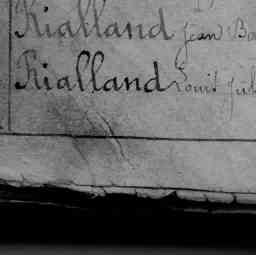 Rialland Jean Ba
Rialland Louis Jul